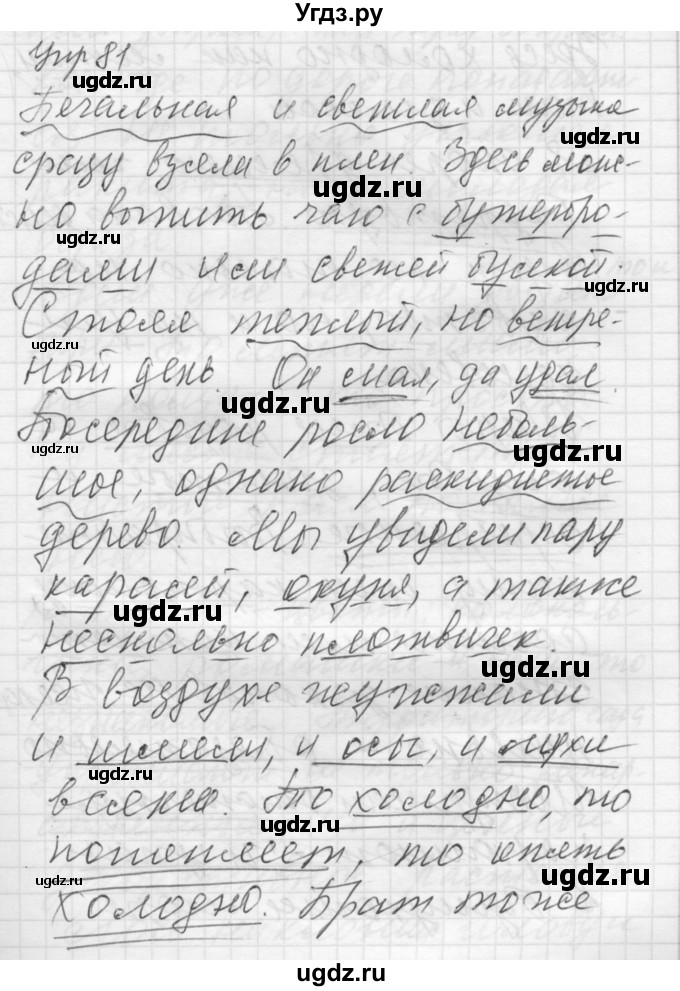 Угдз.ру
Упр 81
ugdz.ru
Печальная и светлая музыка
ugdz.ru
сразу взяла в плен. Здесь мож-
ugdz.ru
но выпить чаю с бутербро-
ugdz.ru
дами или свежей булкой.
ugdz.ru
Стоял теплый, но ветре-
ugdz.ru
ный день. Он мал, да удал.
ugdz.ru
Посередине росло неболь-
ugdz.ru
шое, однако раскидистое
ugdz.ru
дерево. Мы увидели пару
карасей, окуня, а также
ugdz.ru
несколько плотвичек.
ugdz.ru
В воздухе жужжали
и шмели, и осы, и мухи
ugdz.ru
всякие. То холодно, то
ugdz.ru
потеплеет, то опять
ugdz.ru
холодно. Брат тоже
ugdz.ru